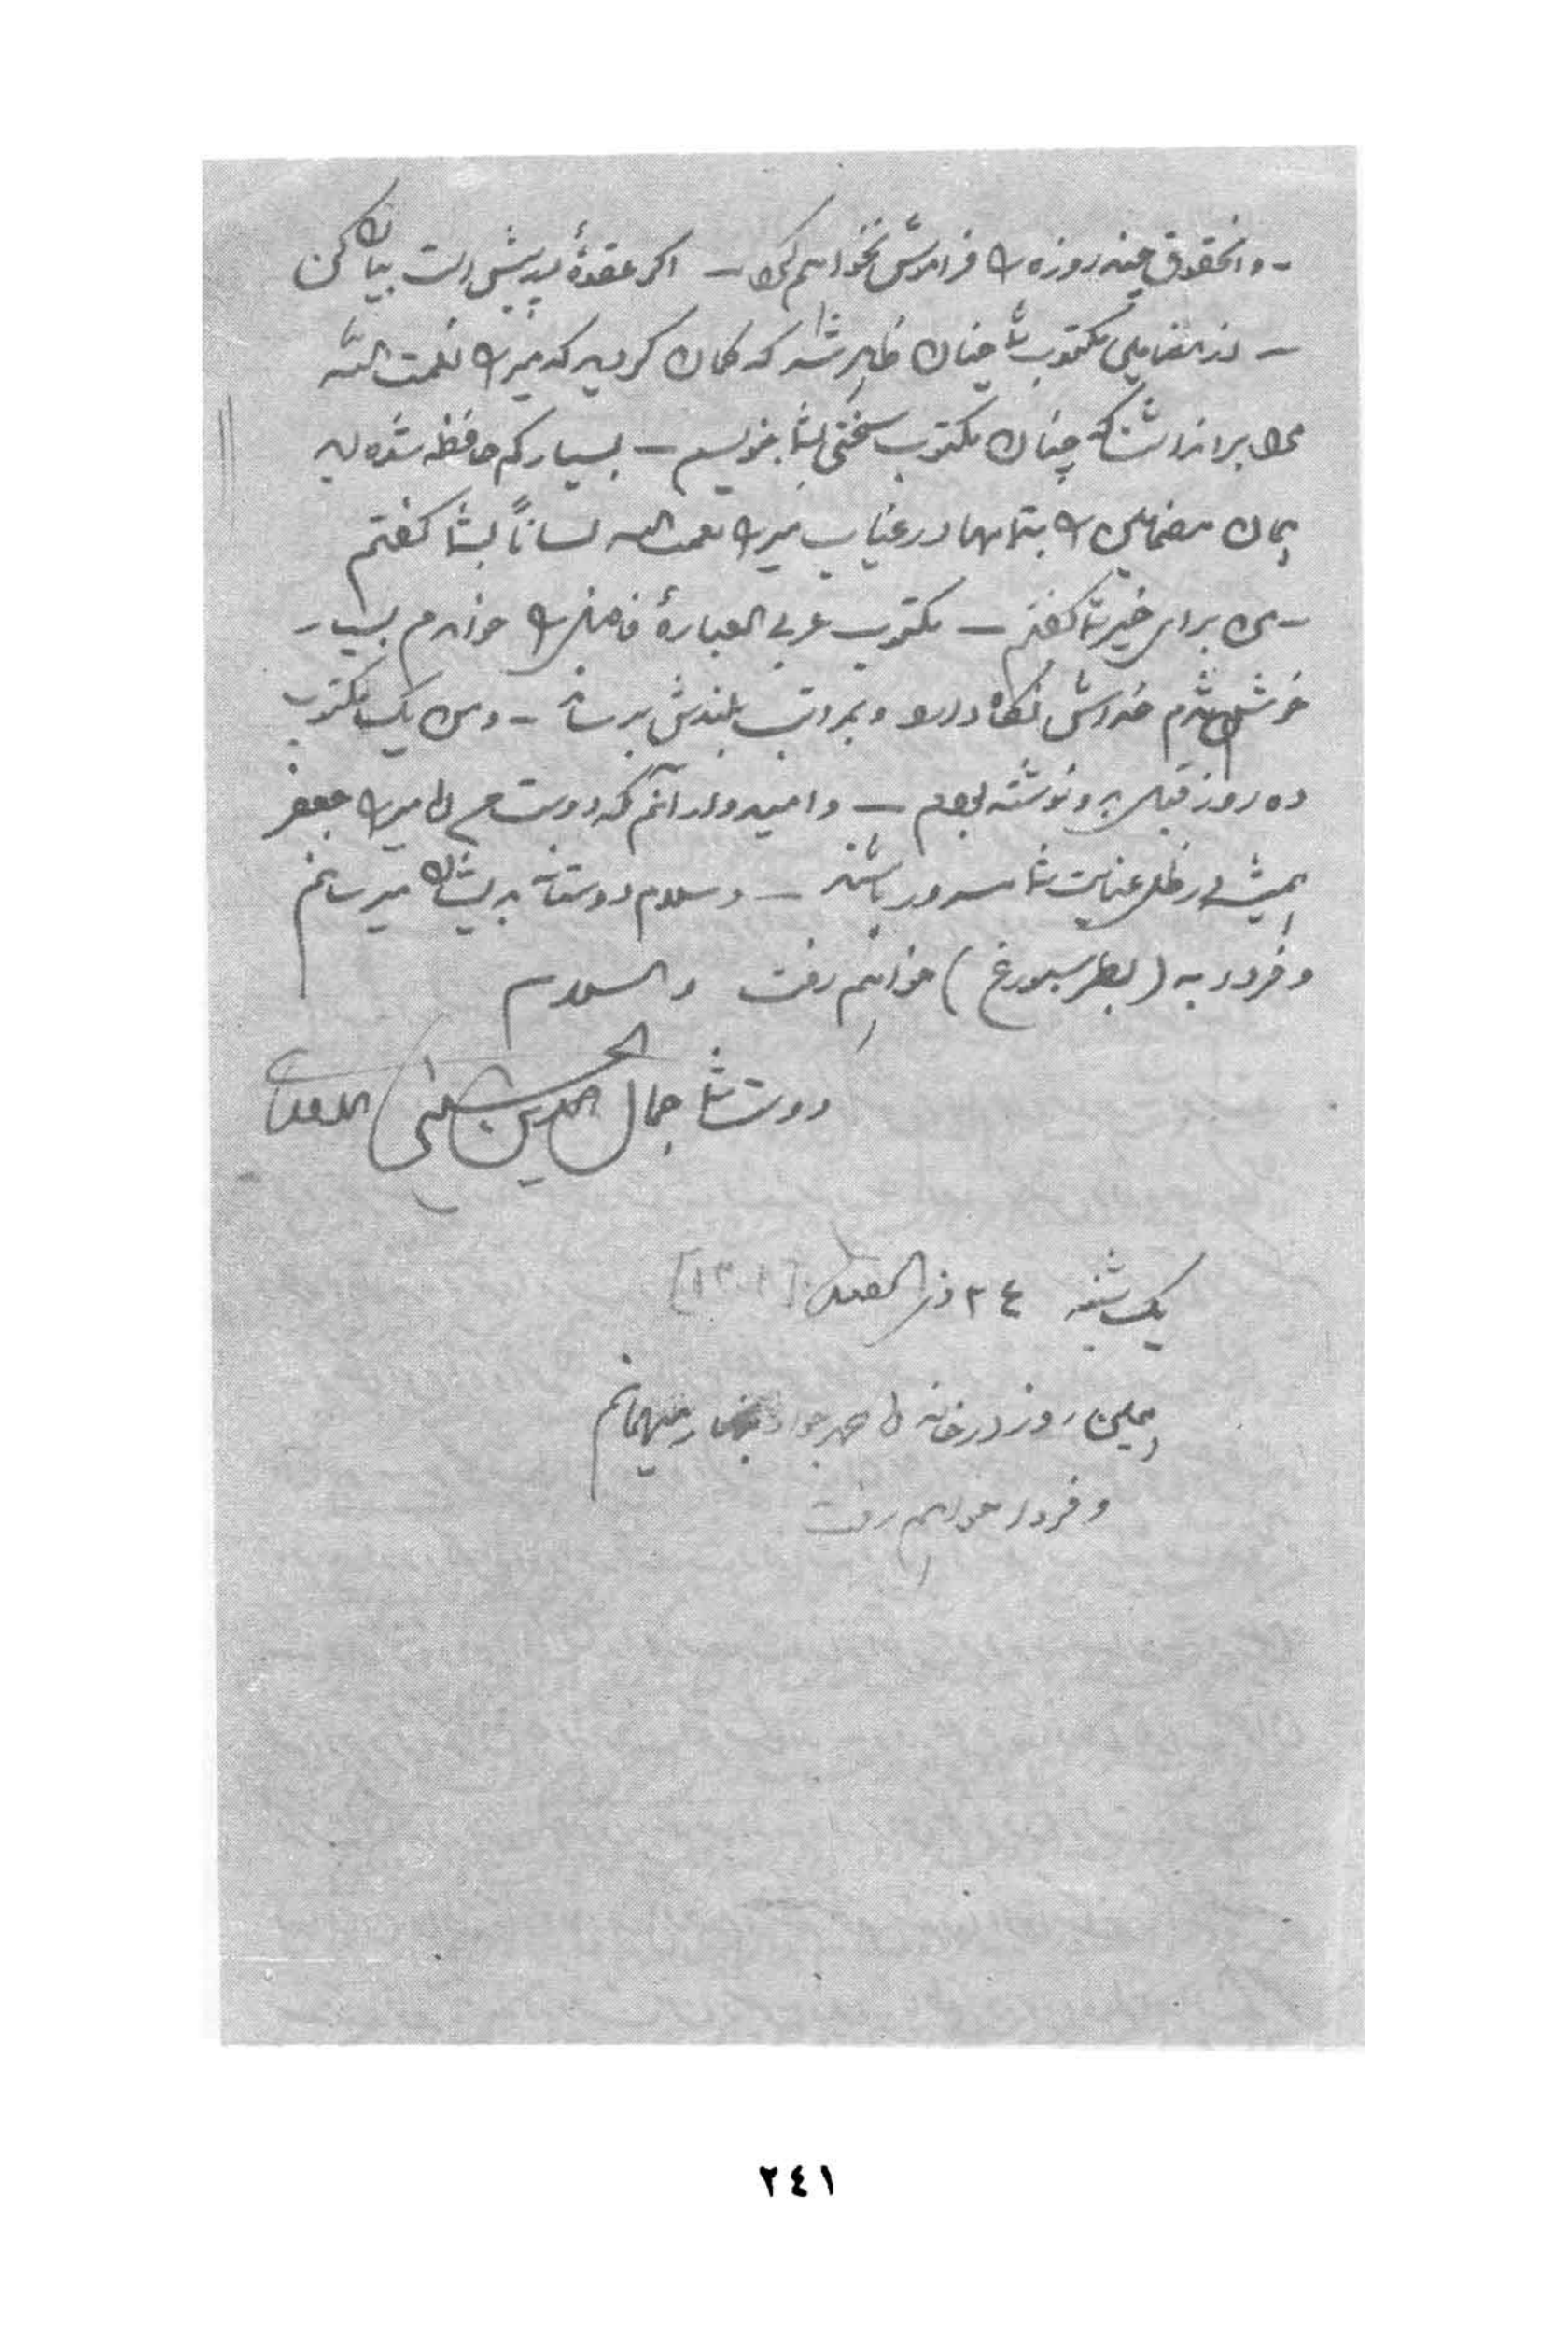 - و آنحقوق چند روزه را فراموش نخواهم کرد - اگر عقدهٔ پدیش است بیان کن
- از مضامین مکتوب شما چنان ظاهر شد که گمان کردید که میرزا نعمت الله
مرا بر آن داشت که چنان مکتوب سختی بشما بنویسم - بسیار کم حافظه شده اید
همان مضامین را بتمامها در غیاب میرزا نعمت الله لساناً بشما گفتم
- من برای خیر شما گفتم - مکتوب عربی العبارهٔ فاضل را خواندم بسیار
خوشدل شدم خداش نگاه دارد و بمراتب بلندش برساند - و من یک مکتوب
ده روز قبل برو نوشته بودم - و امیدوار آنم که دوست من میرزا جعفر
همیشه در ظل عنایت شما مسرور باشند - و سلام دوستانه بایشان میرسانم
و فردا به (بطرسبورغ) خواهم رفت والسلام
دوست شما جمال الدین الحسینی الافغانی
یک شنبه ٢٤ ذی القعده [١٣٠٤]
همین روز در خانه جواد مهمانم
و فردا خواهم رفت
٢٤١